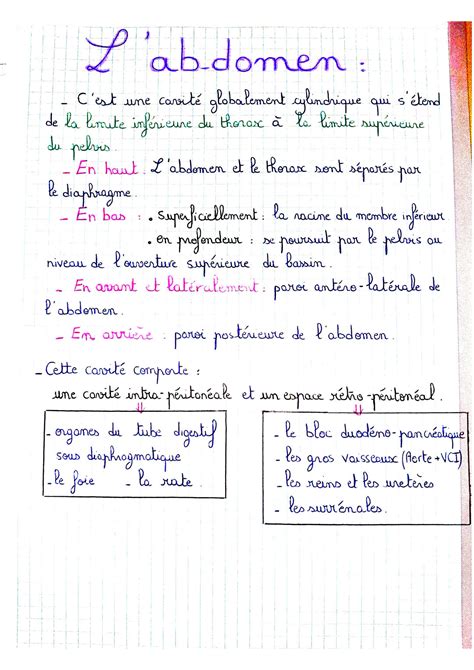 L'abdomen :
_ C'est une cavité globalement cylindrique qui s'étend
de la limite inférieure du thorax à la limite supérieure
du pelvis.
_ En haut : L'abdomen et le thorax sont séparés par
le diaphragme.
_ En bas : . Superficiellement : la racine du membre inférieur
. en profondeur : se poursuit par le pelvis au
niveau de l'ouverture supérieure du bassin.
_ En avant et latéralement : paroi antéro-latérale de
l'abdomen.
_ En arrière : paroi postérieure de l'abdomen.
_ Cette cavité comporte :
une cavité intra-péritonéale et un espace rétro-péritonéal.
⇓ ⇓
- organes du tube digestif
sous diaphragmatique
- le foie - la rate.
- le bloc duodéno-pancréatique
- les gros vaisseaux (Aorte + VCI)
- les reins et les uretères
- les surrénales.